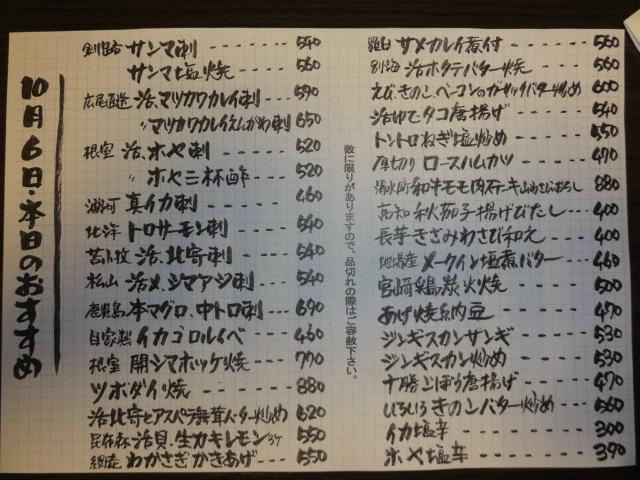 10月6日・本日のおすすめ
釧路 サンマ刺 540
サンマ塩焼 560
広尾直送 活、マツカワカレイ刺 590
〃マツカワカレイえんがわ刺 650
根室 活、ホヤ刺 520
〃 ホヤ三杯酢 520
浦河 真イカ刺 460
北洋 トロサーモン刺 540
苫小牧 活、北寄刺 540
松山 活〆、シマアジ刺 540
鹿児島 本マグロ、中トロ刺 690
自家製 イカゴロルイベ 460
根室 開シマホッケ焼 770
ツボダイ焼 880
活北寄とアスパラ舞茸バター炒め 620
活貝、生カキレモン 3ヶ 550
網走 わかさぎかきあげ 550
数に限りがありますので、品切れの際はご容赦下さい。
羅臼 サメカレイ煮付 560
別海 活ホタテバター焼 560
えび、きのこ、ベーコンのガーリックバター炒め 600
活ゆでタコ唐揚げ 540
トントロねぎ塩炒め 550
厚切り ロースハムカツ 470
和牛モモ肉ステーキ山わさびおろし 880
高知 秋茄子揚げびたし 400
長芋きざみわさび和え 400
地場産 メークイン塩煮バター 460
宮崎鶏炭火焼 500
あげ焼納豆 470
ジンギスカンザンギ 530
ジンギスカン炒め 530
十勝ごぼう唐揚げ 470
いろいろきのこバター炒め 560
イカ塩辛 300
ホヤ塩辛 390